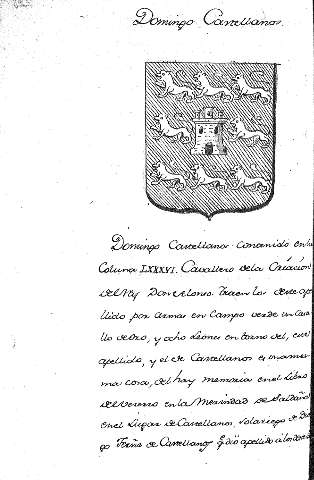 Domingo Castellanos.
Domingo Castellanos contenido en la
Coluna LXXXVI. Cavallero de la Criacion
del Rey Don Alonso. traen los deste ape
llido por armas en Campo verde un Casti
llo de oro, y ocho Leones en torno del, cuio
apellido, y el de Castellanos es una mis
ma cosa, del hay memoria en el Libro
del vecerro en la Merindad de Saldaña
en el Lugar de Castellanos, solariego de Die
go de Castellanos q dio apellido a los